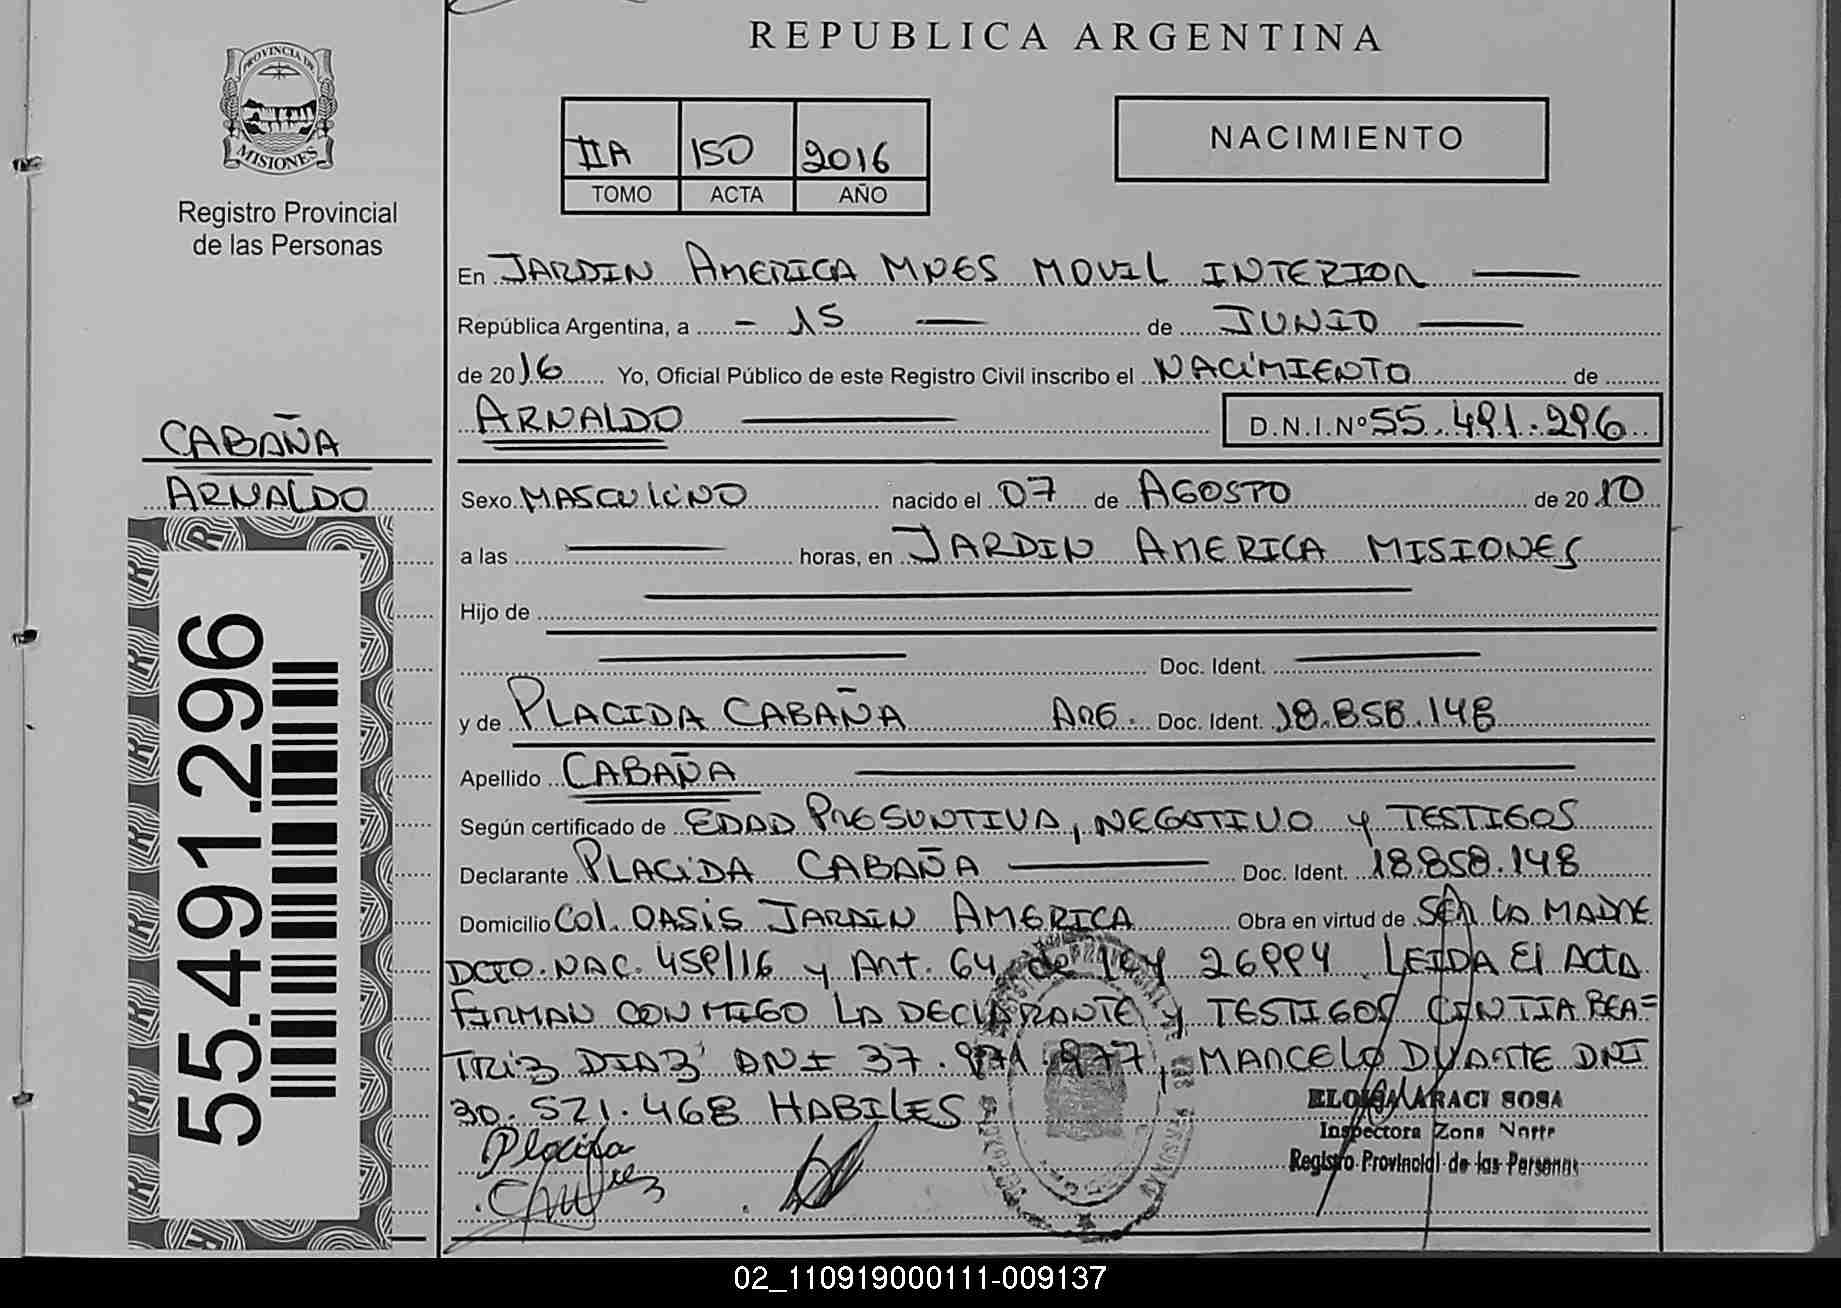 REPUBLICA ARGENTINA
PROVINCIA DE
MISIONES
Registro Provincial
de las Personas
IIA 150 2016
TOMO ACTA AÑO
NACIMIENTO
En JARDIN AMERICA MNES MOVIL INTERIOR
República Argentina, a - 15 — de JUNIO
de 2016 Yo, Oficial Público de este Registro Civil inscribo el NACIMIENTO de
ARNALDO D.N.I.Nº 55.491.296
CABAÑA
ARNALDO
55.491.296
Sexo MASCULINO nacido el 07 de AGOSTO de 2010
a las — horas, en JARDIN AMERICA MISIONES
Hijo de
Doc. Ident.
y de PLACIDA CABAÑA ARG. Doc. Ident. 18.858.148
Apellido CABAÑA
Según certificado de EDAD PRESUNTIVA, NEGATIVO y TESTIGOS
Declarante PLACIDA CABAÑA Doc. Ident. 18.858.148
Domicilio Col. OASIS JARDIN AMERICA Obra en virtud de SER LA MADRE
DCTO. NAC. 459/16 y Art. 64 de ley 26994. LEIDA El ACTA
FIRMAN CONMIGO LA DECLARANTE y TESTIGOS CINTIA BEA=
TRIZ DIAZ DNI 37.971.977, MARCELO DUARTE DNI
30.521.468 HABILES
Placida
ELOISA ARACI SOSA
Inspectora Zona Norte
Registro Provincial de las Personas
02_110919000111-009137